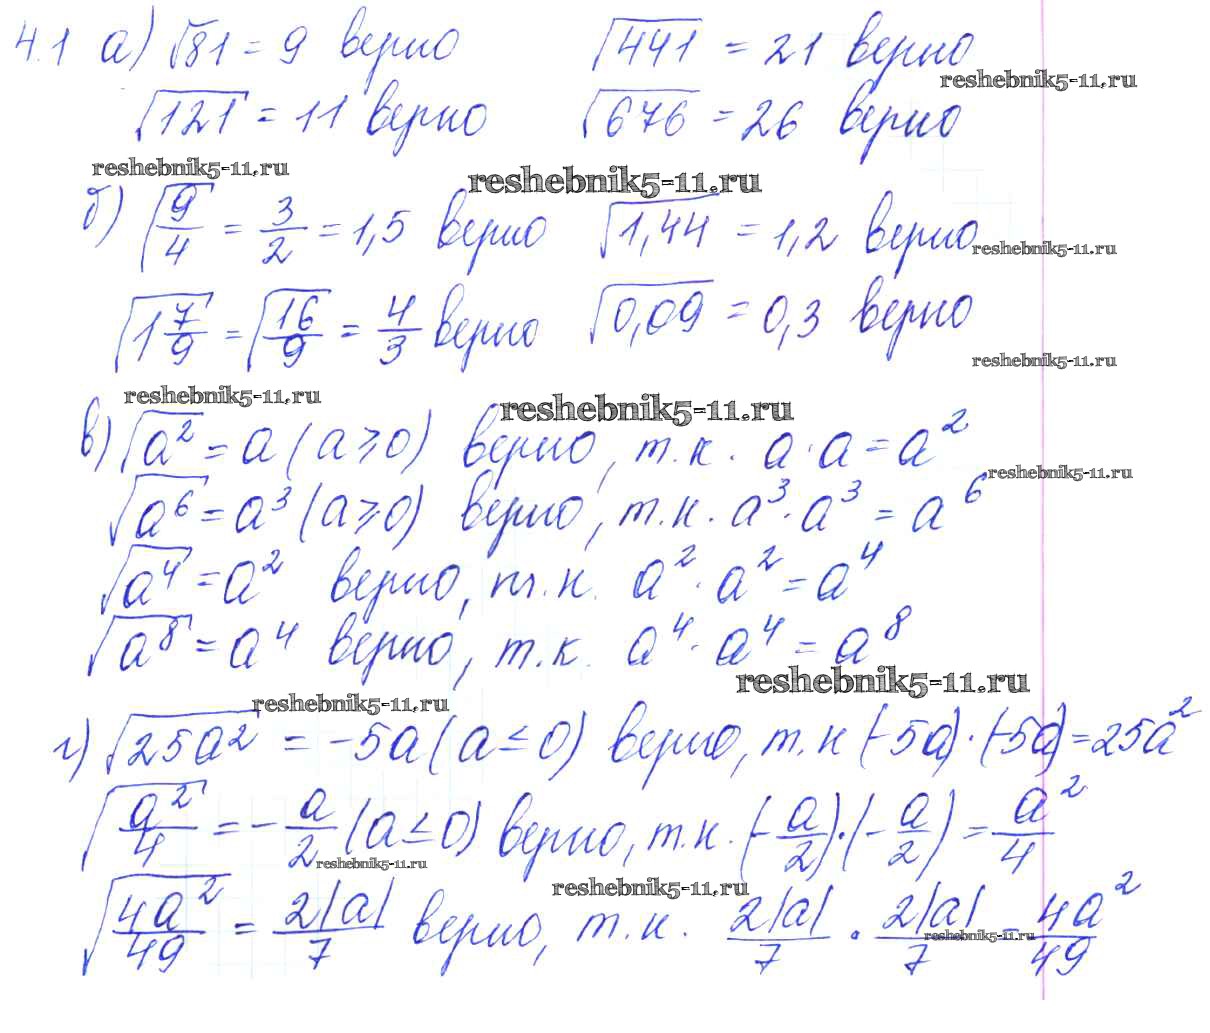 4.1 а) √81 = 9 верно √441 = 21 верно
reshebnik5-11.ru
√121 = 11 верно √676 = 26 верно
reshebnik5-11.ru reshebnik5-11.ru
б) √(9/4) = 3/2 = 1,5 верно √1,44 = 1,2 верно
reshebnik5-11.ru
√(1 7/9) = √(16/9) = 4/3 верно √0,09 = 0,3 верно
reshebnik5-11.ru
reshebnik5-11.ru reshebnik5-11.ru
в) √a² = a (a ≥ 0) верно, т.к. a · a = a²
reshebnik5-11.ru
√a⁶ = a³ (a ≥ 0) верно, т.к. a³ · a³ = a⁶
√a⁴ = a² верно, т.к. a² · a² = a⁴
√a⁸ = a⁴ верно, т.к. a⁴ · a⁴ = a⁸
reshebnik5-11.ru
reshebnik5-11.ru
г) √25a² = -5a (a ≤ 0) верно, т.к (-5a) · (-5a) = 25a²
√(a²/4) = -a/2 (a ≤ 0) верно, т.к. (-a/2) · (-a/2) = a²/4
reshebnik5-11.ru
reshebnik5-11.ru
√(4a²/49) = 2|a|/7 верно, т.к. 2|a|/7 · 2|a|/7 = 4a²/49
reshebnik5-11.ru